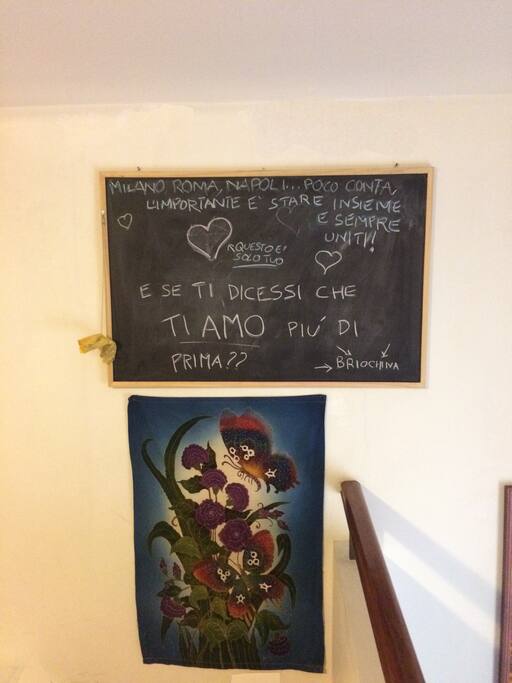 MILANO ROMA, NAPOLI... POCO CONTA,
L'IMPORTANTE E' STARE INSIEME
E SEMPRE
UNITI!
QUESTO E'
SOLO TUO
E SE TI DICESSI CHE
TI AMO PIU' DI
PRIMA??
→ BRIOCHINA